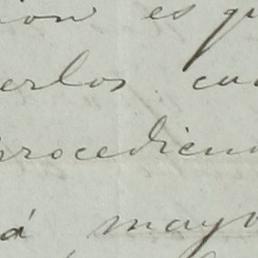 ion es qu
erlos cu
procedien
á mayo